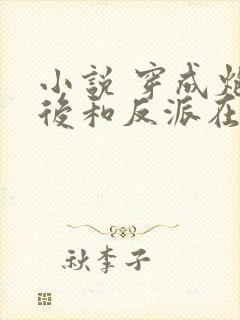 小說 穿成
後和反派在
秋李子